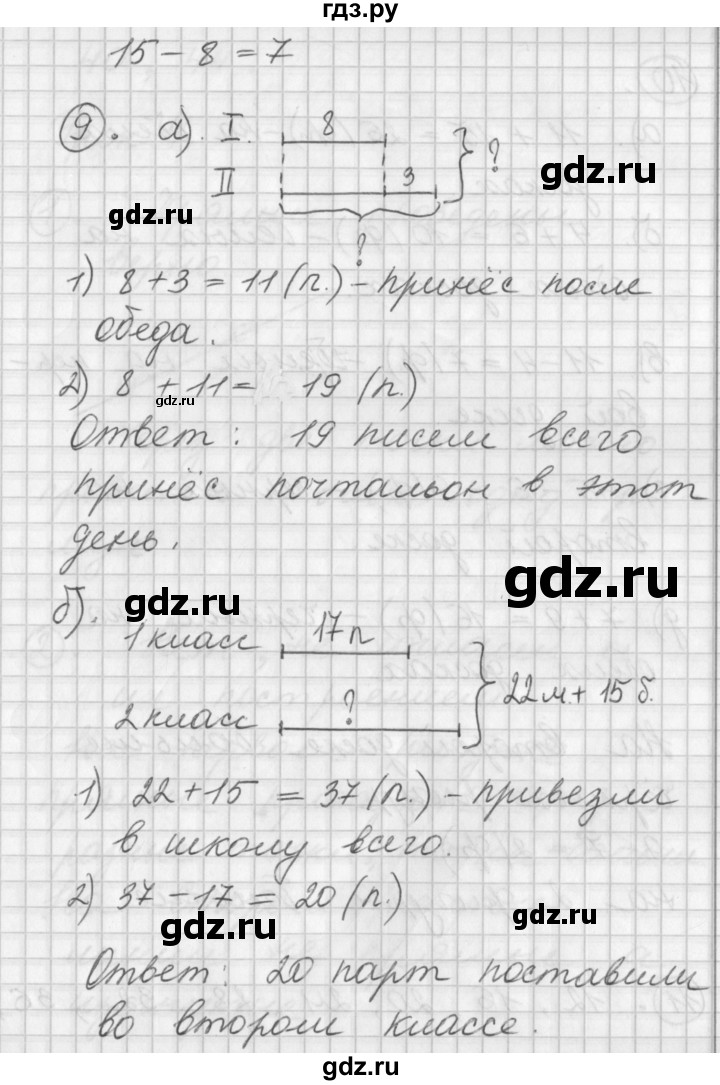 гдз.ру
15 - 8 = 7
9. а). I. 8 ?
II 3
gdz.ru
gdz.ru
?
1) 8 + 3 = 11 (п.) - принёс после
обеда.
gdz.ru
2) 8 + 11 = 19 (п.)
gdz.ru
Ответ: 19 писем всего
принёс почтальон в этот
день.
gdz.ru
б).
gdz.ru
1 класс 17 п
22 м. + 15 б.
2 класс ?
1) 22 + 15 = 37 (п.) - привезли
в школу всего.
2) 37 - 17 = 20 (п.)
gdz.ru
gdz.ru
Ответ: 20 парт поставили
во втором классе.
gdz.ru